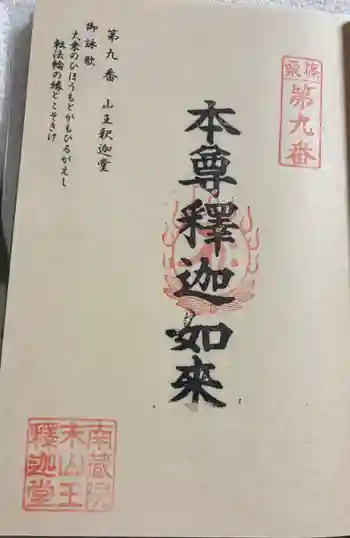 篠栗
第九番
本尊釋迦如來
第九番　山王釈迦堂
御詠歌
大乗のひほうもとがもひるがえし
転法輪の縁とこそきけ
南蔵院
末山王
釋迦堂